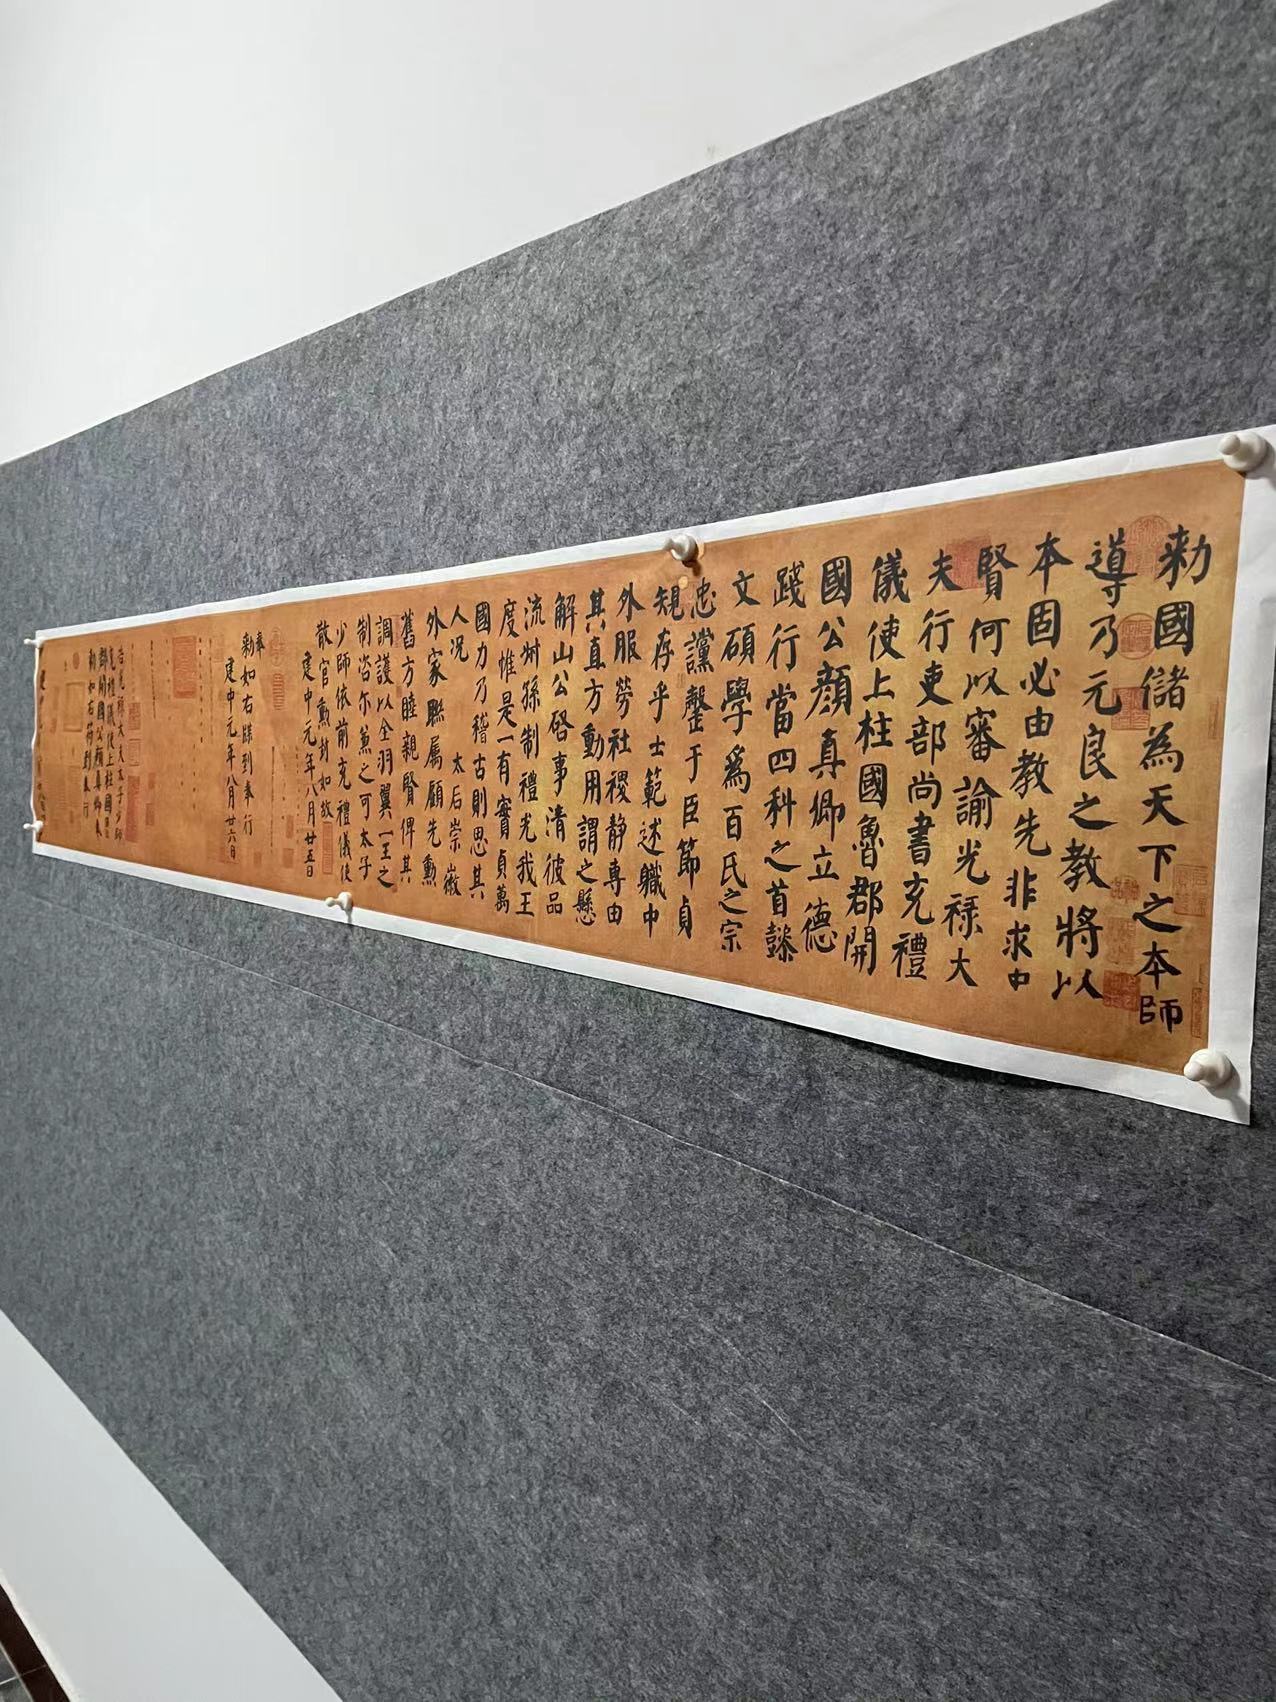 勑國儲為天下之本師
導乃元良之教將以
本固必由教先非求中
賢何以審諭光禄大
夫行吏部尚書充禮
儀使上柱國魯郡開
國公顔真卿立德
踐行當四科之首懿
文碩學爲百氏之宗
忠讜罄于臣節貞
規存乎士範述職中
外服勞社稷静專由
其直方動用謂之懸
解山公啓事清彼品
流叔孫制禮光我王
度惟是一有實貞萬
國力乃稽古則思其
人况 太后崇徽
外家聯属顧先勳
舊方睦親賢俾其
調護以全羽翼一王之
制咨尔兼之可太子
少師依前充禮儀使
散官勳封如故
建中元年八月廿五日
奉
勑如右牒到奉行
建中元年八月廿六日